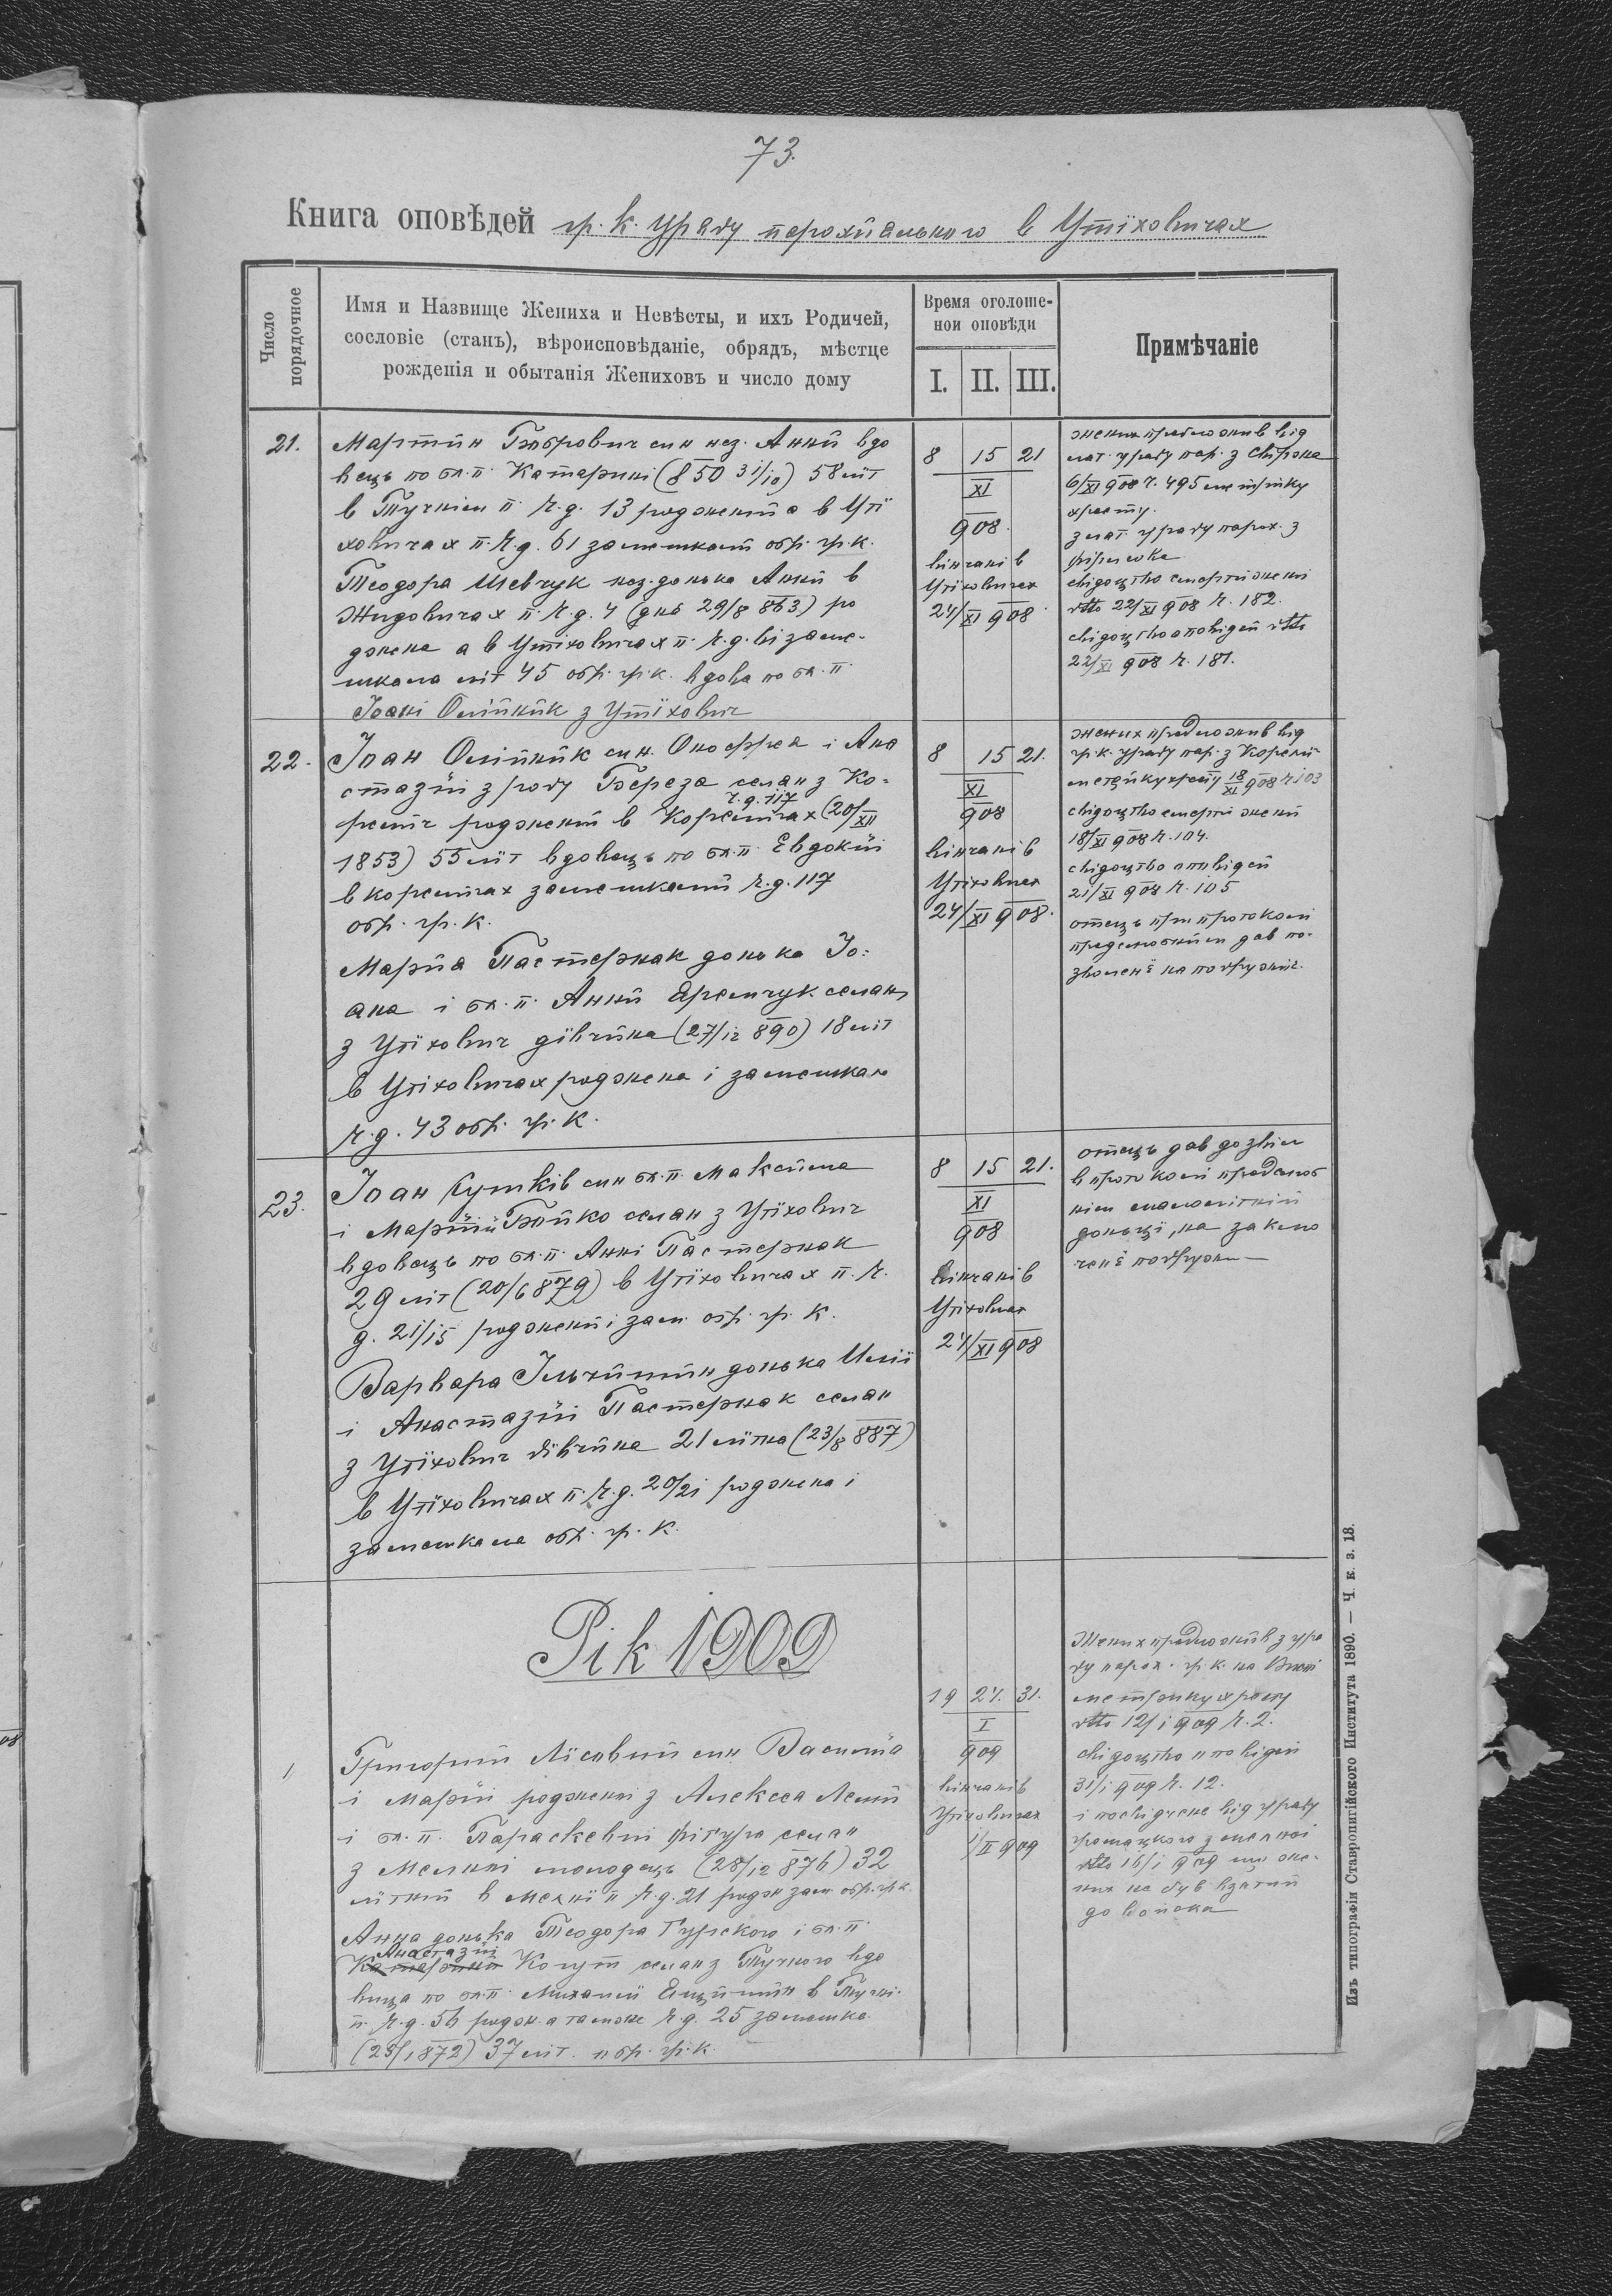 73.
Книга оповѣдей гр. к. Уряду парохіяльного в Утїховичах
Число порядочное
Имя и Назвище Жениха и Невѣсты, и ихъ Родичей,
сословіе (станъ), вѣроисповѣданіе, обрядъ, мѣстце
рожденія и обытанія Жениховъ и число дому
Время оголоше-
нои оповѣди
I. II. III.
Примѣчаніе
21.
Мартин син нез. Анни вдо
вець по бл. п. Катарині (850 31/10) 58 літ
в Тучнім п. ч. д. 13 роджений а в Утї
ховичах п. ч. д. 61 замешкалий обр. гр. к.
Теодора Шевчук нез. донька Анни в
Жидовичах п. ч. д. 4 (дня 29/8 863) ро
джена а в Утїховичах п. ч. д. 61 заме-
шкала літ 45 обр. гр. к. вдова по бл. п.
Іоані Олійник з Утїхович
8 15 21
XI
908.
вінчані в
Утїховичах
24/XI 908.
жених предложив від
лат. уряду пар. з Свіржа
6/XI 908 ч. 495 метрику
хресту.
з лат. уряду парох. з
свідоцтво смерти жени
dtto 22/XI 908 ч. 182.
свідоцтво оповідей dtto
22/XI 908 ч. 181.
22.
Іоан Олійник син Онофрея і Ана
стазиї з роду Береза селян з Ко-
релич роджений в Кореличах ч. д. 117 (20/XII
1853) 55 літ вдовець по бл. п. Евдокії
в Кореличах замешкалий ч. д. 117
обр. гр. к.
Мария Пастернак донька Іо-
ана і бл. п. Анни Яремчук селян
з Утїхович дївчина (27/12 890) 18 літ
в Утїховичах роджена і замешкала
ч. д. 43 обр. гр. к.
8 15 21.
XI
908
вінчані в
Утїховичах
24/XI 908.
жених предложив від
гр. к. уряду пар. з Корелич
метрику хресту 18/XI 908 ч 103
свідоцтво смерти жени
18/XI 908 ч. 104.
свідоцтво оповідей
21/XI 908 ч. 105
отець при протоколі
предслюбнім дав по-
зволенє на подружіє.
23.
Іоан Кутків син бл. п. Максима
і Мариї Бойко селян з Утїхович
вдовець по бл. п. Анні Пастернак
29 літ (20/6 879) в Утїховичах п. ч.
д. 21/15 роджений і зам. обр. гр. к.
Варвара Ільчишин донька Илиї
і Анастазиї Пастернак селян
з Утїхович дївчина 21 літна (23/8 887)
в Утїховичах п. ч. д. 20/21 роджена і
замешкала обр. гр. к.
8 15 21.
XI
908
вінчані в
Утїховичах
24/XI 908
отець дав дозвіл
в протоколі предслюб
нім малолітній
доньцї, на заклю
ченє подружя
Рік 1909
1
Григорий Лїсовий син Василия
і Мариї родженої з Алексея Лелий
і бл. п. Параскевиї Фітура селян
з Мелни молодець (28/12 876) 32
літний в Мелнї п ч. д. 21 родж зам. обр. гр. к.
Анна донька Теодора Гурского і бл. п.
Анастазиї
Катерини Когут селян з Тучного вдо
вица по бл. п. Михаилї Яцишин в Тучні-
п. ч. д. 56 родж. а також ч. д. 25 замешка
(23/1 872) 37 літ. обр. гр. к.
19 24. 31.
I
909
вінчані в
Утїховичах
1/II 909
Жених предложив з уря
ду парох. гр. к.
метрику хресту
dtto 12/1 909 ч. 2.
свідоцтво оповідей
31/1 909 ч. 12.
і посвідченє від уряду
громадского з Мелної
dtto 16/1 909 що же-
них не був взятий
до войска
Изъ типографіи Ставропигійского Института 1890. — Ч. к. з. 18.